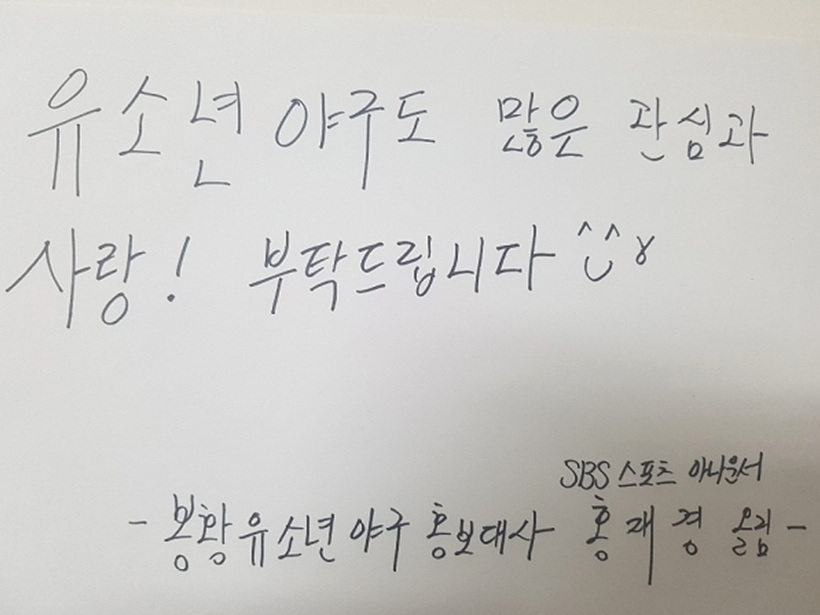 유소년 야구도 많은 관심과
사랑! 부탁드립니다 ^^
SBS 스포츠 아나운서
- 봉황유소년야구 홍보대사 홍재경 올림 -